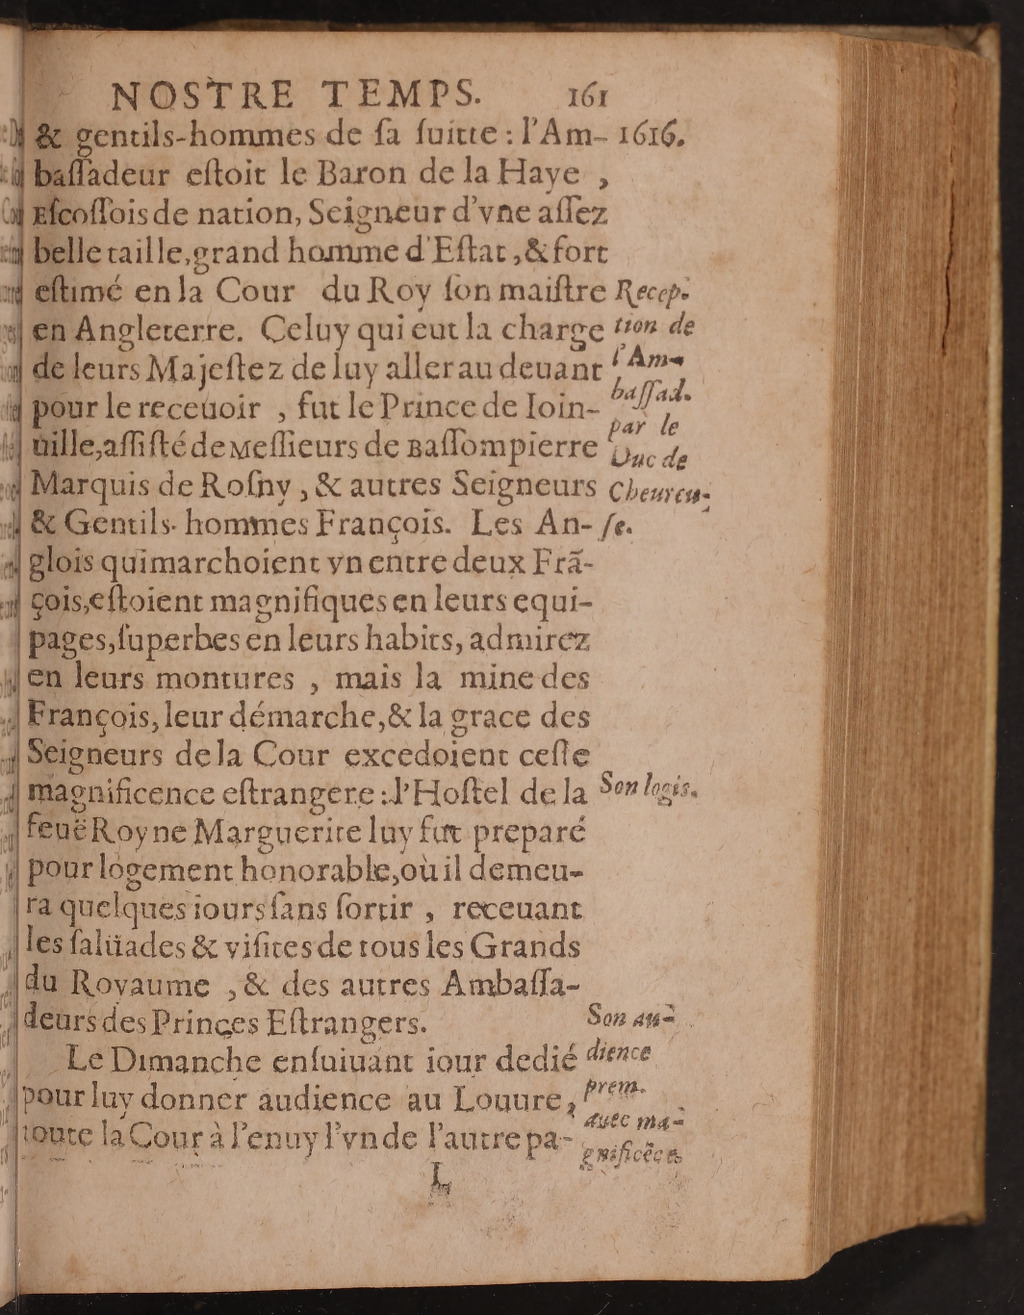 NOSTRE TEMPS. 161
& gentils-hommes de ſa ſuitte : l'Am- 1616.
baſſadeur eſtoit le Baron de la Haye ,
Eſcoſſois de nation, Seigneur d'vne aſſez
belle taille, grand homme d'Eſtat, & fort
eſtimé en la Cour du Roy ſon maiſtre
en Angleterre. Celuy qui eut la charge
de leurs Majeſtez de luy aller au deuant
pour le receuoir , fut le Prince de Ioin-
uille, aſſiſté de meſſieurs de Baſſompierre
Marquis de Roſny , & autres Seigneurs
& Gentils-hommes François. Les An-
glois qui marchoient vn entre deux Frã-
çois, eſtoient magnifiques en leurs equi-
pages, ſuperbes en leurs habits, admirez
en leurs montures , mais la mine des
François, leur démarche, & la grace des
Seigneurs de la Cour excedoient ceſte
magnificence eſtrangere : l'Hoſtel de la
feuë Royne Marguerite luy fut preparé
pour logement honorable, où il demeu-
ra quelques iours ſans ſortir , receuant
les ſalüades & viſites de tous les Grands
du Royaume , & des autres Ambaſſa-
deurs des Princes Eſtrangers.
Le Dimanche enſuiuant iour dedié
pour luy donner audience au Louure,
toute la Cour à l'enuy l'vn de l'autre pa-
L
Recep-
tion de
l'Am-
baſſad.
par le
Duc de
Cheureu-
ſe.
Son logis.
Son au-
dience
prem.
auec ma-
gnificēce